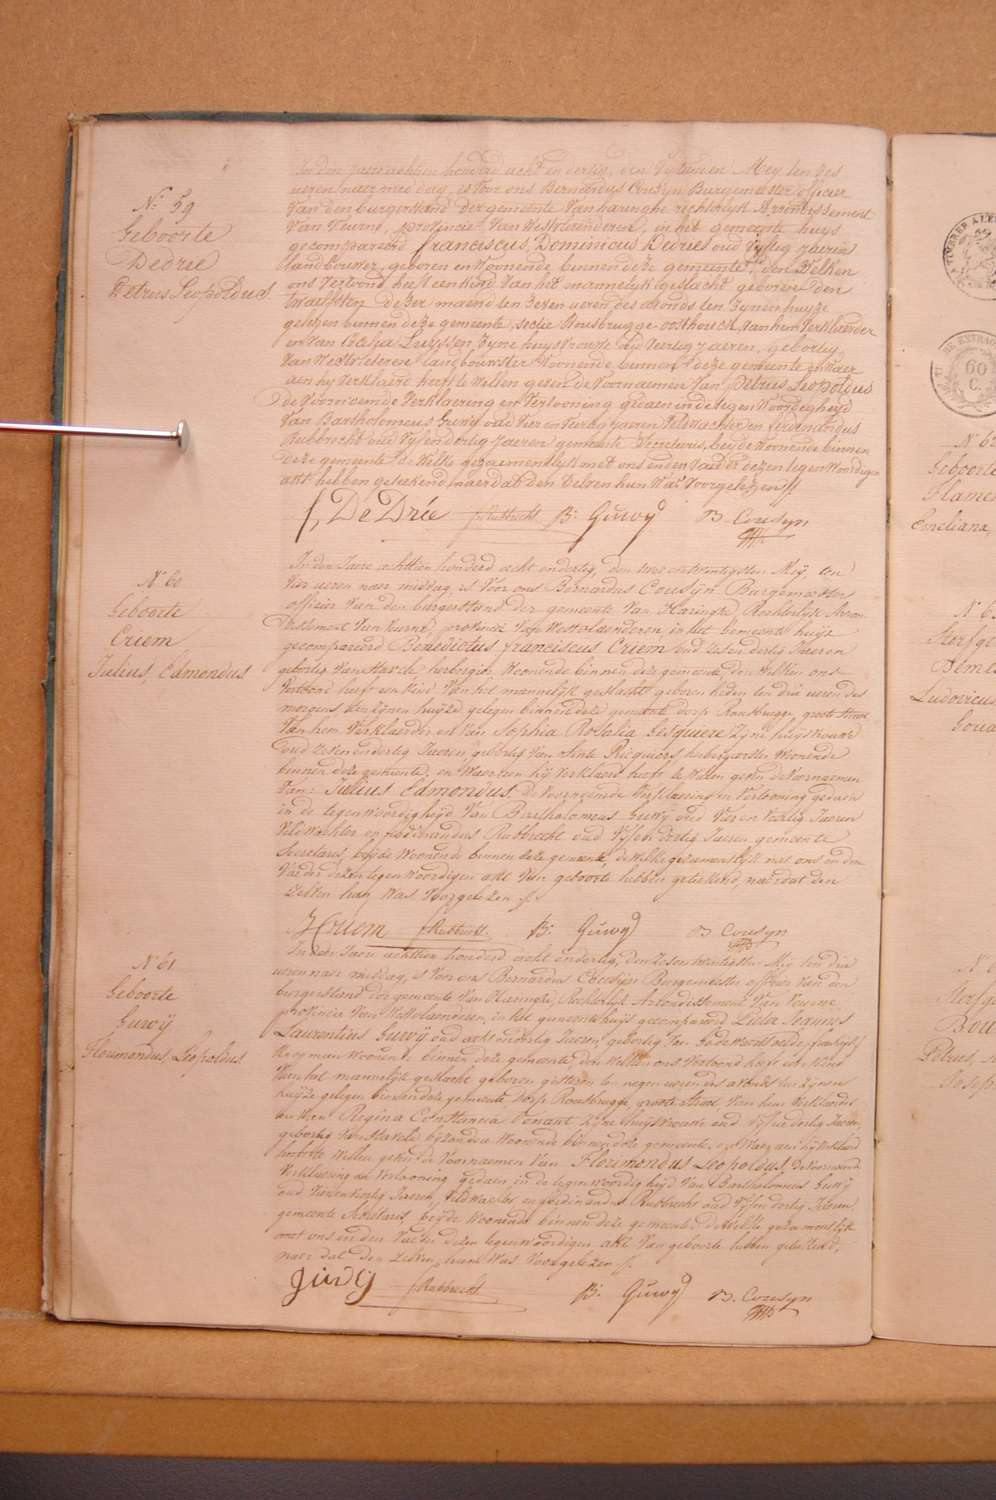 N.º 59
Geboorte
Dedrie
Petrus Leopoldus
In den jaere achttien honderd acht en dertig, den Vyftienen Mey ten zes
ueren naer middag, is voor ons Bernardus Cousyn Burgemeester officier
Van den burgerstand der gemeente Van haringhe rechterlyk Arrondissement
Van Veurne, provincie Van Westvlaenderen, in het gemeente huys
gecompareerd Franciscus, Dominicus Dedrie oud Vyftig jaeren
landbouwer, geboren en Woonende binnen deze gemeente, den Welken
ons Vertoond heeft een kind Van het mannelyk geslacht geboren den
twaelfsten dezer maend ten zeven ueren des avonds ten zynen huyze
gelegen binnen deze gemeente, sectie Rousbrugge-oosthoeck, Van hem Verklaerder
en Van Coleta Luyssen, Zyne huysvrouwe oud Veertig jaeren, geboortig
Van Westvleteren landbouwster Woonende binnen deze gemeente en Waer
aen hy Verklaert heeft te Willen geven de Voornaemen Van Petrus Leopoldus
de Voornoemde Verklaering en Vertooning gedaen in de tegenwoordigheyd
Van Bartholomeus Guwy oud Vier en Veertig jaeren Veldwachter en Ferdinandus
Rubbrecht oud Vyf en dertig jaeren gemeente Secretaris, beyde Woonende binnen
deze gemeente de Welke gezaementlyk met ons en den Vaeder dezen tegenwoordigen
akt hebben geteekend naer dat den Zelven hun Was Voorgelezen //
f, De Drie f Rubbrecht B: Guwy B. Cousyn
N.º 60
Geboorte
Criem
Julius, Edmondus
In den Jaere achttien honderd acht en dertig, den twee en twintigsten Mey, ten
Vier ueren naer middag, is Voor ons Bernardus Cousyn Burgemeester
officier Van den burgerstand der gemeente Van Haringhe, Rechterlyk Arron-
dissement Van Veurne, provincie Van Westvlaenderen, in het Gemeente huyze
gecompareerd Benedictus Franciscus Criem oud zesen dertig Jaeren
geboortig Van Stavele, herbergier Woonende binnen deze gemeente, den Welken ons
Vertoond heeft een kind Van het mannelyk geslacht geboren heden ten drie ueren des
morgens ten zynen huyze gelegen binnen deze gemeente dorp Rousbrugge, groote Straet
Van hem Verklaerder en Van Sophia Rosalia Gesquiere Zyne huysvrouwe
oud zesen dertig Jaeren, geboortig Van Sinte Ricquiers herbergierster Woonende
binnen deze gemeente, en Waer aen hy Verklaert heeft te Willen geven de Voornaemen
Van: Julius Edmondus. De Voornoemde Verklaering en Vertooning gedaen
in de tegenwoordigheyd Van Bartholomeus Guwy oud Vier en Veertig Jaeren
Veldwachter en ferdinandus Rubbrecht oud Vyf en dertig Jaeren, gemeente
Secretaris, beyde Woonende binnen deze gemeente, de Welke gezaementlyk met ons en den
Vaeder dezen tegenwoordigen akt Van geboorte hebben geteekend, naer dat den
zelven hun Was Voorgelezen //.
Criem f Rubbrecht. B: Guwy B Cousyn
N.º 61
Geboorte
Guwy
Florimondus, Leopoldus
In den Jaere achttien honderd acht en dertig, den zesen twintigsten Mey ten drie
ueren naer middag, is Voor ons Bernardus Cousyn Burgemeester officier Van den
burgerstand der gemeente Van Haringhe, Rechterlyk Arrondissement Van Veurne
provincie Van Westvlaenderen, in het gemeente huys gecompareerd Joannes
Laurentius Guwy oud acht en dertig Jaeren, geboortig Van
Koopman Woonende binnen deze gemeente, den Welken ons Vertoond heeft een kind
Van het mannelyk geslacht geboren gisteren ten negen ueren des avonds ten zynen
huyze gelegen binnen deze gemeente, dorp Rousbrugge, groote straet Van hem Verklaerder
en Van Regina Constancia Tenant Zyne huysvrouwe oud Vyf en dertig Jaeren,
geboortig Van Stavele byzondere Woonende binnen deze gemeente, en Waer aen hy Verklaert
heeft te Willen geven de Voornaemen Van Florimondus Leopoldus. De Voornoemde
Verklaering en Vertooning gedaen, in de tegenwoordigheyd Van Bartholomeus Guwy
oud Vier en Veertig Jaeren, Veldwachter en ferdinandus Rubbrecht oud Vyf en dertig Jaeren,
gemeente Secretaris, beyde Woonende binnen deze gemeente, de Welke gezaementlyk
met ons en den Vaeder dezen tegenwoordigen akt Van geboorte hebben geteekend,
naer dat den Zelven, hun Was Voorgelezen //.
Guwy f Rubbrecht B: Guwy B. Cousyn
60
C.
Geboorte
Flamen
Emeliana,
Sterfge
Ludovicus
Sterfge
Petrus,
Joseph